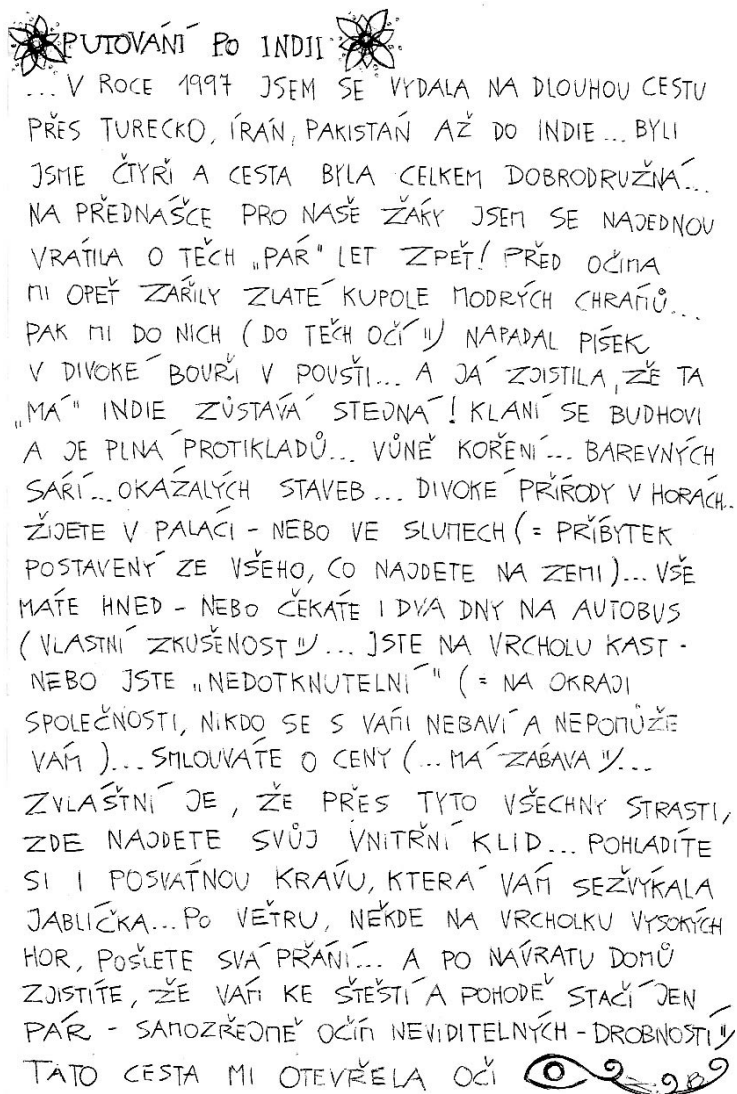 PUTOVÁNÍ PO INDII
... V ROCE 1997 JSEM SE VYDALA NA DLOUHOU CESTU
PŘES TURECKO, ÍRÁN, PAKISTÁN AŽ DO INDIE... BYLI
JSME ČTYŘI A CESTA BYLA CELKEM DOBRODRUŽNÁ...
NA PŘEDNÁŠCE PRO NAŠE ŽÁKY JSEM SE NAJEDNOU
VRÁTILA O TĚCH „PÁR" LET ZPĚT! PŘED OČIMA
MI OPĚT ZÁŘILY ZLATÉ KUPOLE MODRÝCH CHRÁMŮ...
PAK MI DO NICH (DO TĚCH OČÍ ") NAPADAL PÍSEK
V DIVOKÉ BOUŘI V POUŠTI... A JÁ ZJISTILA, ŽE TA
„MÁ" INDIE ZŮSTÁVÁ STEJNÁ! KLANÍ SE BUDHOVI
A JE PLNÁ PROTIKLADŮ... VŮNĚ KOŘENÍ... BAREVNÝCH
SÁRÍ... OKÁZALÝCH STAVEB... DIVOKÉ PŘÍRODY V HORÁCH..
ŽIJETE V PALÁCI - NEBO VE SLUMECH (= PŘÍBYTEK
POSTAVENÝ ZE VŠEHO, CO NAJDETE NA ZEMI)... VŠE
MÁTE HNED - NEBO ČEKÁTE I DVA DNY NA AUTOBUS
(VLASTNÍ ZKUŠENOST ")... JSTE NA VRCHOLU KAST -
NEBO JSTE „NEDOTKNUTELNÍ" (= NA OKRAJI
SPOLEČNOSTI, NIKDO SE S VÁMI NEBAVÍ A NEPOMŮŽE
VÁM)... SMLOUVÁTE O CENY (... MÁ ZÁBAVA ")...
ZVLÁŠTNÍ JE, ŽE PŘES TYTO VŠECHNY STRASTI,
ZDE NAJDETE SVŮJ VNITŘNÍ KLID... POHLADÍTE
SI I POSVÁTNOU KRÁVU, KTERÁ VÁM SEŽVÝKALA
JABLÍČKA... PO VĚTRU, NĚKDE NA VRCHOLKU VYSOKÝCH
HOR, POŠLETE SVÁ PŘÁNÍ... A PO NÁVRATU DOMŮ
ZJISTÍTE, ŽE VÁM KE ŠTĚSTÍ A POHODĚ STAČÍ JEN
PÁR - SAMOZŘEJMĚ OČÍM NEVIDITELNÝCH - DROBNOSTÍ "
TATO CESTA MI OTEVŘELA OČI